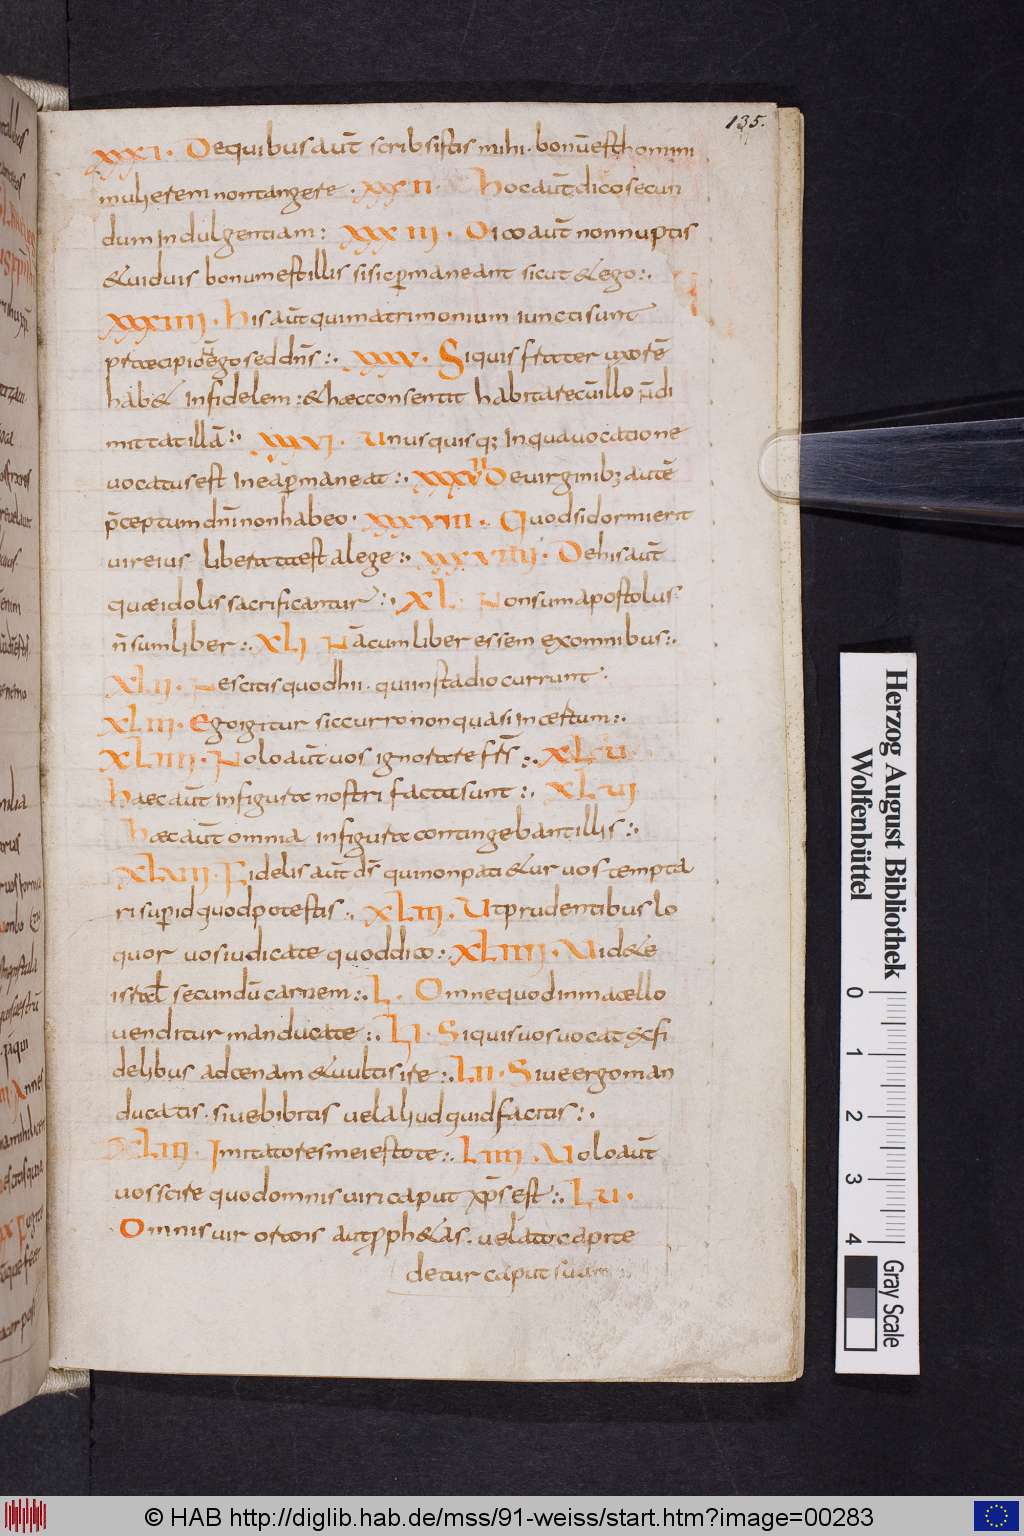 135.
XXXI. De quibus aut̄ scribsistis mihi. bonū est homini
mulierem non tangere. XXXII. Hoc aut̄ dico secun
dum indulgentiam: XXXIII. Dico aut̄ non nuptis
& uiduis bonum est illis si sic ꝑmaneant sicut & ego:.
XXXIIII. His aut̄ qui matrimonium iuncti sunt
praecipio n̄ ego sed dn̄s:. XXXV. Si quis frater uxorē
hab& infidelem: & haec consentit habitare cū illo n̄ di
mittat illā:. XXXVI. Unusquisq; in qua uocatione
uocatus est in ea ꝑmaneat:. XXXVII De uirginib; autē
p̄ceptum dn̄i non habeo. XXXVIII. Quod si dormierit
uir eius liberata est a lege:. XXXVIIII. De his aut̄
quae idolis sacrificantur:. XL. Non sum apostolus
n̄ sum liber:. XLI Nā cum liber essem ex omnibus:.
XLII. Nescitis quod hii. qui in stadio currunt:
XLIII. Ego igitur sic curro non quasi in cestum:.
XLIIII. Nolo aut̄ uos ignorare frs̄:. XLU
Haec aut̄ in figura nostri facta sunt:. XLUI
Haec aut̄ omnia in figura contingebant illis:.
XLUII. Fidelis aut̄ ds̄ qui non pati&ur uos tempta
ri suꝑ id quod potestis:. XLIII. Ut prudentibus lo
quor uos iudicate quod dico:. XLIIII. Uid&e
israhel̄ secundū carnem:. L. Omne quod in macello
uenditur manducate:. LI. Si quis uos uocat & fi
delibus ad cenam & uultis ire:. LII. Siue ergo man
ducatis. siue bibitis uel aliud quid facitis:.
XLIII. Imitatores mei estote:. LIIII. Uolo aut̄
uos scire quod omnis uiri caput xp̄s est:. LU.
Omnis uir orans aut ꝓph&as. uelato capite
detur caput suum
Herzog August Bibliothek
Wolfenbüttel
0 1 2 3 4
Gray Scale
© HAB http://diglib.hab.de/mss/91-weiss/start.htm?image=00283